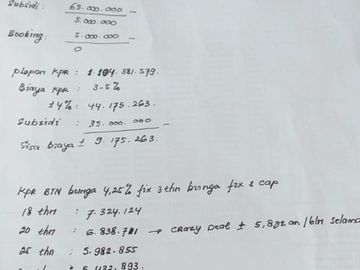 Subsidi : 65.000.000 -
5.000.000
Booking : 5.000.000 -
0
plapon KPR : 1.104.381.579.
Biaya KPR : 3-5%
±4% : 44.175.263.
Subsidi : 35.000.000 -
Sisa biaya ± 9.175.263.
KPR BTN bunga 4,25% fix 3thn bunga fix & cap
18 thn : 7.324.124
20 thn : 6.838.701 → crazy Deal ± 5,8jt an/bln selama
25 thn : 5.982.855
: 5.432.893.